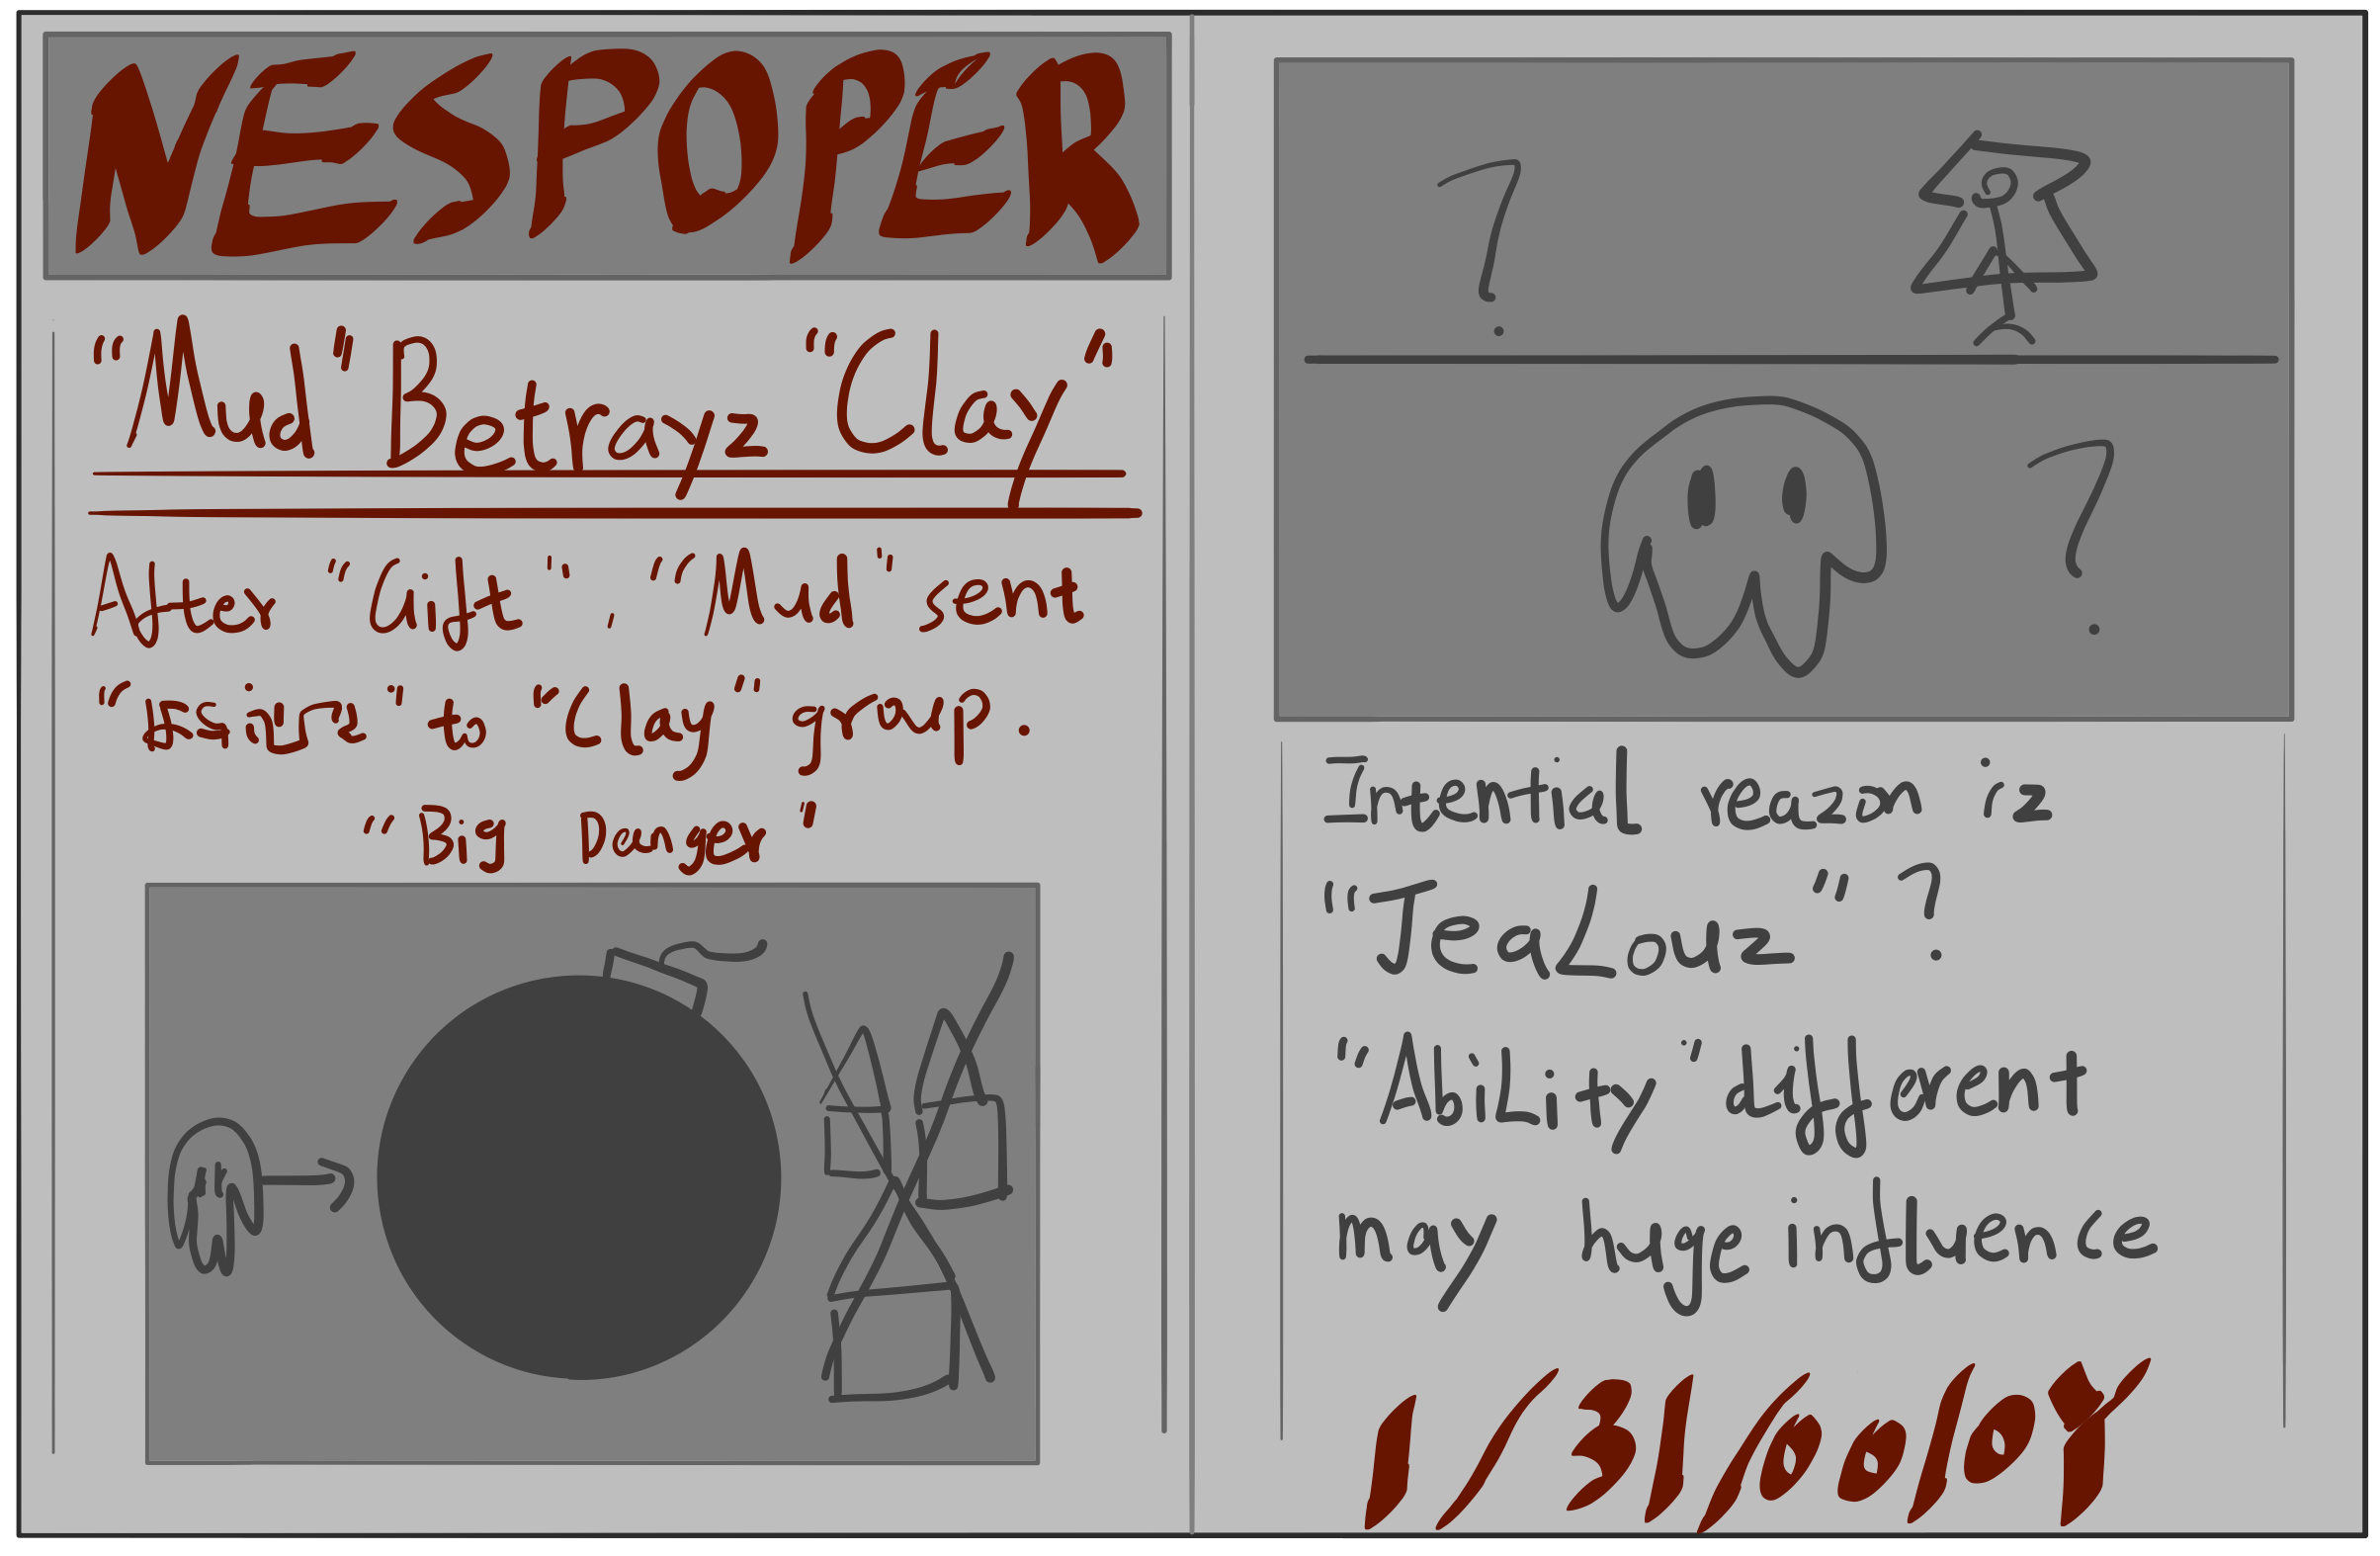 NESPOPER
"Mud" Betrayz "Clay"
After "Gift", "("Mud" sent
to "Clay" group.
"Big Danger"
?
?
Intential reazon iz
"TeaLouz"?
"AbiLity" different
may huge influence
1/31/00/0Y